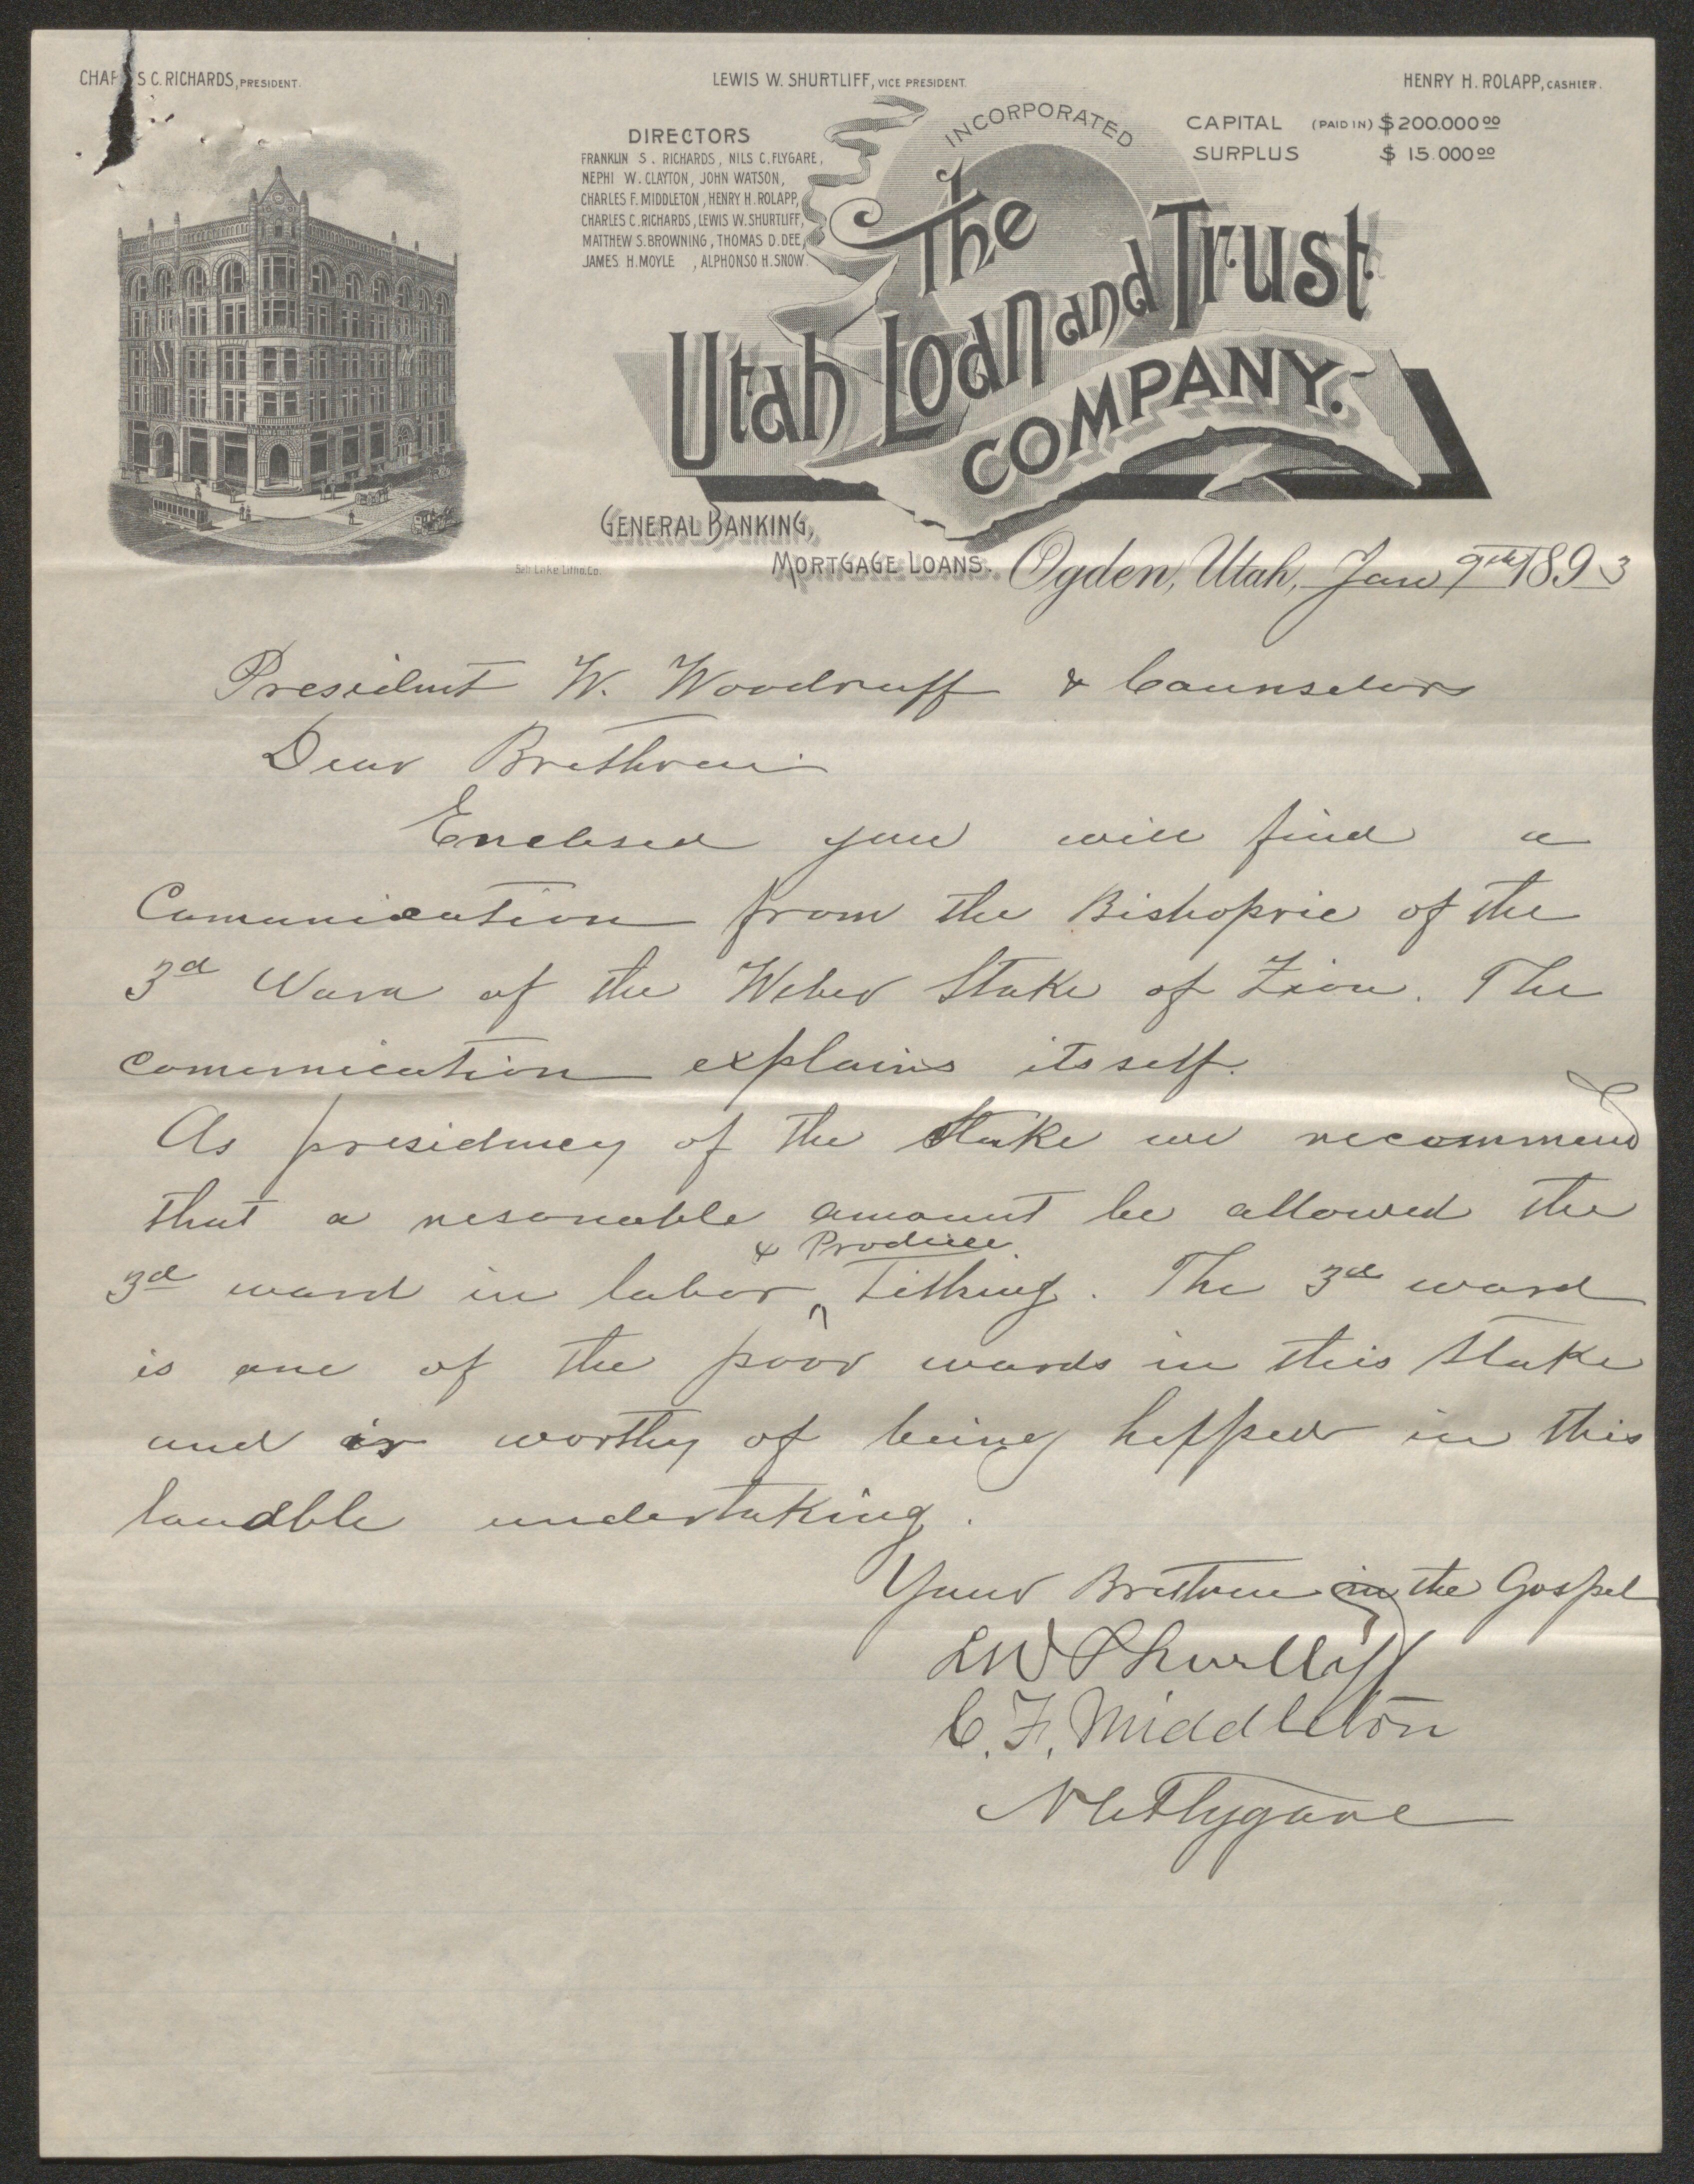 CHARLES C. RICHARDS, PRESIDENT.
LEWIS W. SHURTLIFF, VICE PRESIDENT.
HENRY H. ROLAPP, CASHIER.
DIRECTORS
FRANKLIN S. RICHARDS, NILS C. FLYGARE,
NEPHI W. CLAYTON, JOHN WATSON,
CHARLES F. MIDDLETON, HENRY H. ROLAPP,
CHARLES C. RICHARDS, LEWIS W. SHURTLIFF,
MATTHEW S. BROWNING, THOMAS D. DEE,
JAMES H. MOYLE, ALPHONSO H. SNOW
INCORPORATED
CAPITAL (PAID IN) $200.000 00
SURPLUS $ 15.000 00
The
Utah Loan and Trust
COMPANY.
GENERAL BANKING,
MORTGAGE LOANS.
Salt Lake Litho. Co.
Ogden, Utah, Jan 9th 1893
President W. Woodruff & Counselors
Dear Brethren
Enclosed you will find a
Comunication from the Bishopric of the
3d Ward of the Weber Stake of Zion. The
comunication explains itsself.
As presidency of the Stake we recommend
that a resonable amount be allowed the
3d ward in labor & Produce Tithing. The 3d ward
is one of the poor wards in this Stake
and is worthy of being helped in this
laudble undertaking.
Your Brethren in the Gospel
L W Shurtliff
C. F. Middleton
N C Flygare